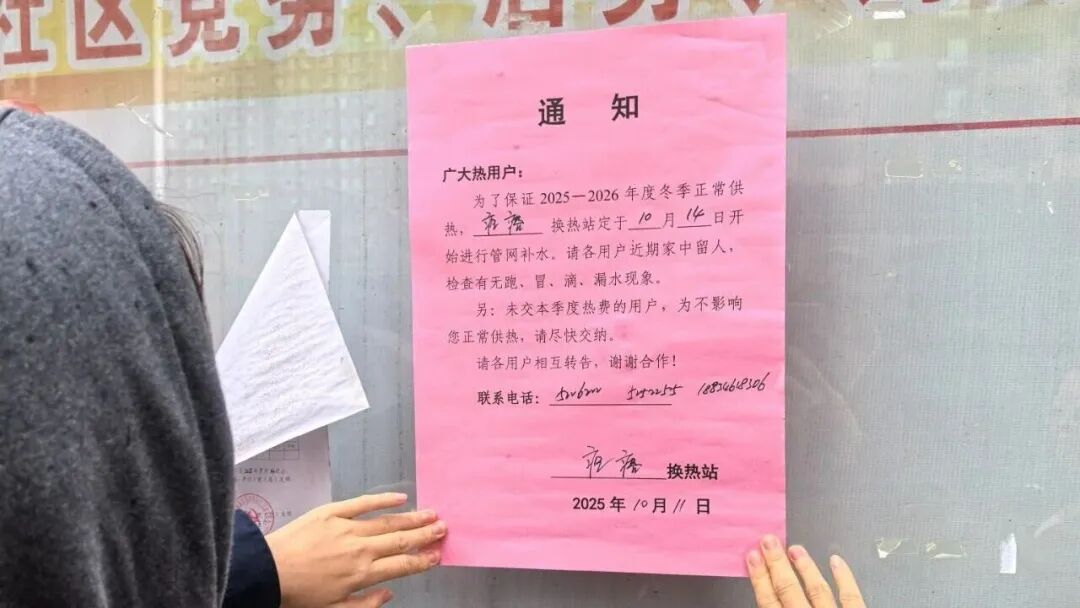 社区党务、居务、
通 知
广大热用户：
为了保证 2025—2026 年度冬季正常供
热， 换热站定于 10 月 14 日开
始进行管网补水。请各用户近期家中留人，
检查有无跑、冒、滴、漏水现象。
另：未交本季度热费的用户，为不影响
您正常供热，请尽快交纳。
请各用户相互转告，谢谢合作！
联系电话： 5152255
换热站
2025 年 10 月 11 日